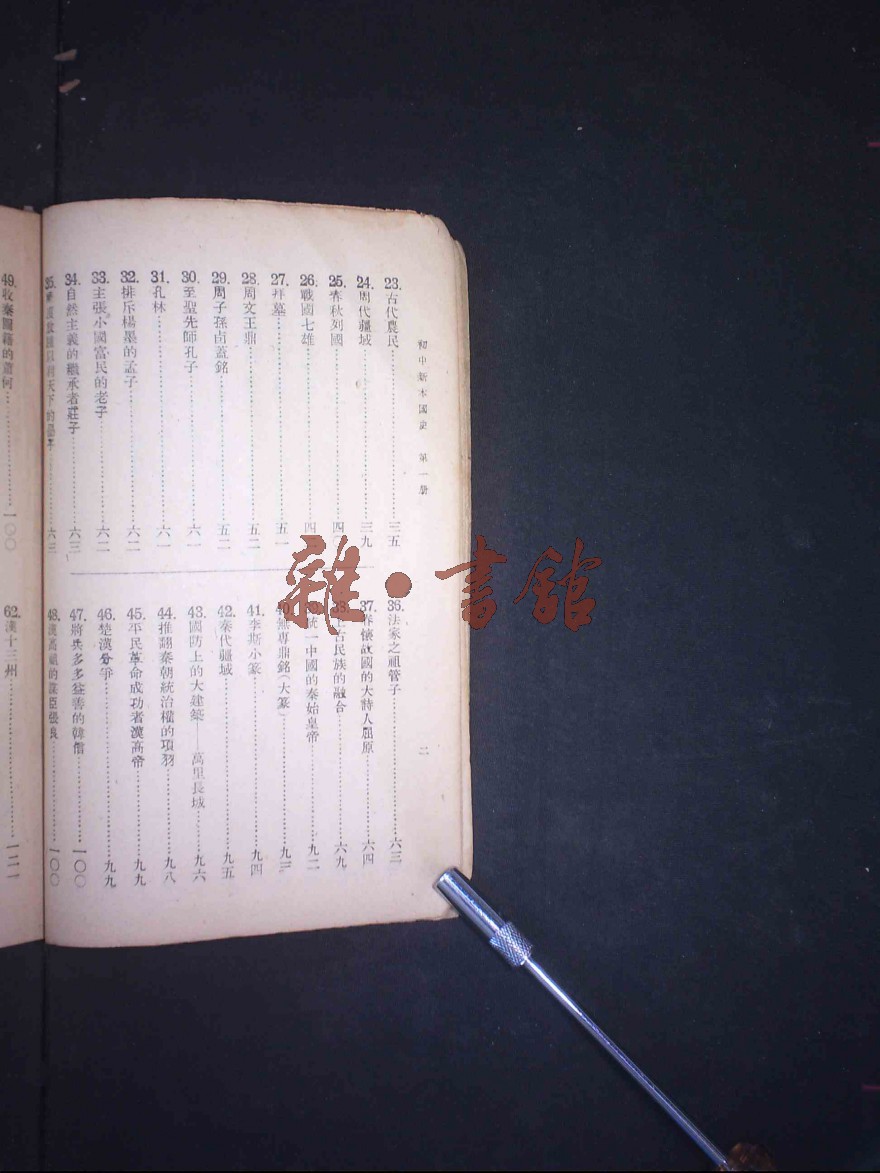 初中新本國史 第一册
二
23. 古代農民 三五
24. 周代疆域 三九
25. 春秋列國 四
26. 戰國七雄 四
27. 拜墓 五一
28. 周文王鼎 五二
29. 周子孫卣蓋銘 五二
30. 至聖先師孔子 六一
31. 孔林 六一
32. 排斥楊墨的孟子 六二
33. 主張小國富民的老子 六二
34. 自然主義的繼承者莊子 六三
35. 以利天下的墨子 六三
36. 法家之祖管子 六三
37. 眷懷故國的大詩人屈原 六四
38. 上古民族的融合 六九
39. 統一中國的秦始皇帝 九二
40. 專鼎銘(大篆) 九三
41. 李斯小篆 九四
42. 秦代疆域 九五
43. 國防上的大建築——萬里長城 九六
44. 推翻秦朝統治權的項羽 九八
45. 平民革命成功者漢高帝 九九
46. 楚漢分爭 九九
47. 將兵多多益善的韓信 一〇〇
48. 漢高祖的謀臣張良 一〇〇
49. 收秦圖籍的蕭何 一〇〇
62. 漢十三州 一二一
雜·書館